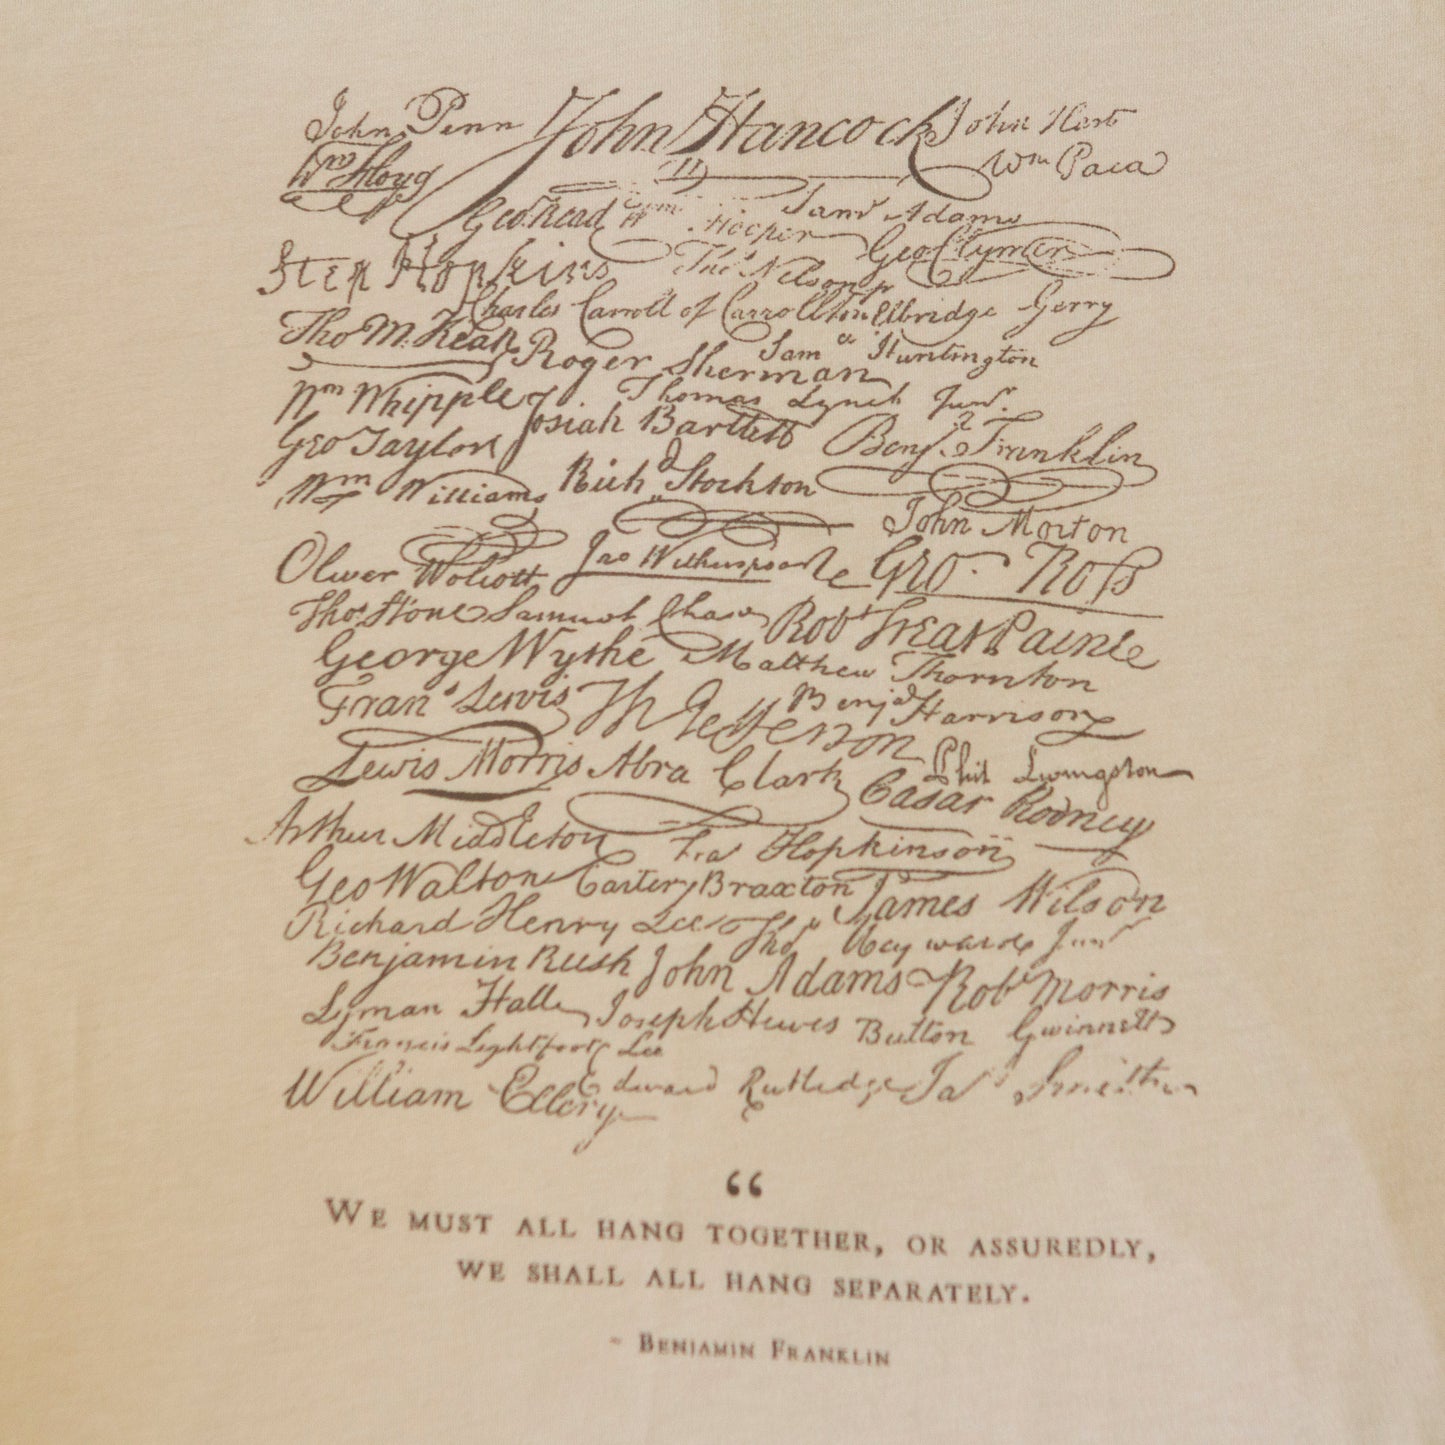 John Penn John Hancock John Hart
Wm Floyd Wm Paca
Geo. Read Wm Hooper Saml Adams
Step Hopkins Thos Nelson jr Geo Clymer
Charles Carroll of Carrollton Elbridge Gerry
Tho M. Kean Roger Sherman Saml Huntington
Wm Whipple Thomas Lynch Junr.
Geo Taylor Josiah Bartlett Benj. Franklin
Wm Williams Richd Stockton
John Morton
Oliver Wolcott Jno Witherspoon Geo. Ross
Thos Stone Samuel Chase Robt Treat Paine
George Wythe Matthew Thornton
Frans Lewis Th Jefferson Benja Harrison
Lewis Morris Abra Clark Phil Livingston
Cæsar Rodney
Arthur Middleton Fras Hopkinson
Geo Walton Carter Braxton James Wilson
Richard Henry Lee Thos Heyward Junr
Benjamin Rush John Adams Robt Morris
Lyman Hall Joseph Hewes Button Gwinnett
Francis Lightfoot Lee
William Ellery Edward Rutledge Jas Smith
“
WE MUST ALL HANG TOGETHER, OR ASSUREDLY,
WE SHALL ALL HANG SEPARATELY.
~ BENJAMIN FRANKLIN